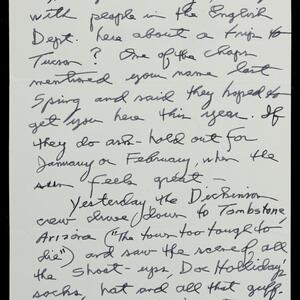 with people in the English
Dept. here about a trip to
Tucson? One of the chaps
mentioned your name last
Spring and said they hoped to
get you here this year. If
they do ask- hold out for
January or February, when the
sun feels great —
Yesterday the Dickinson
crew drove down to Tombstone,
Arizona ("the town too tough to
die") and saw the scene, all
the shoot-ups, Doc Holliday's
socks, hat and all that guff.